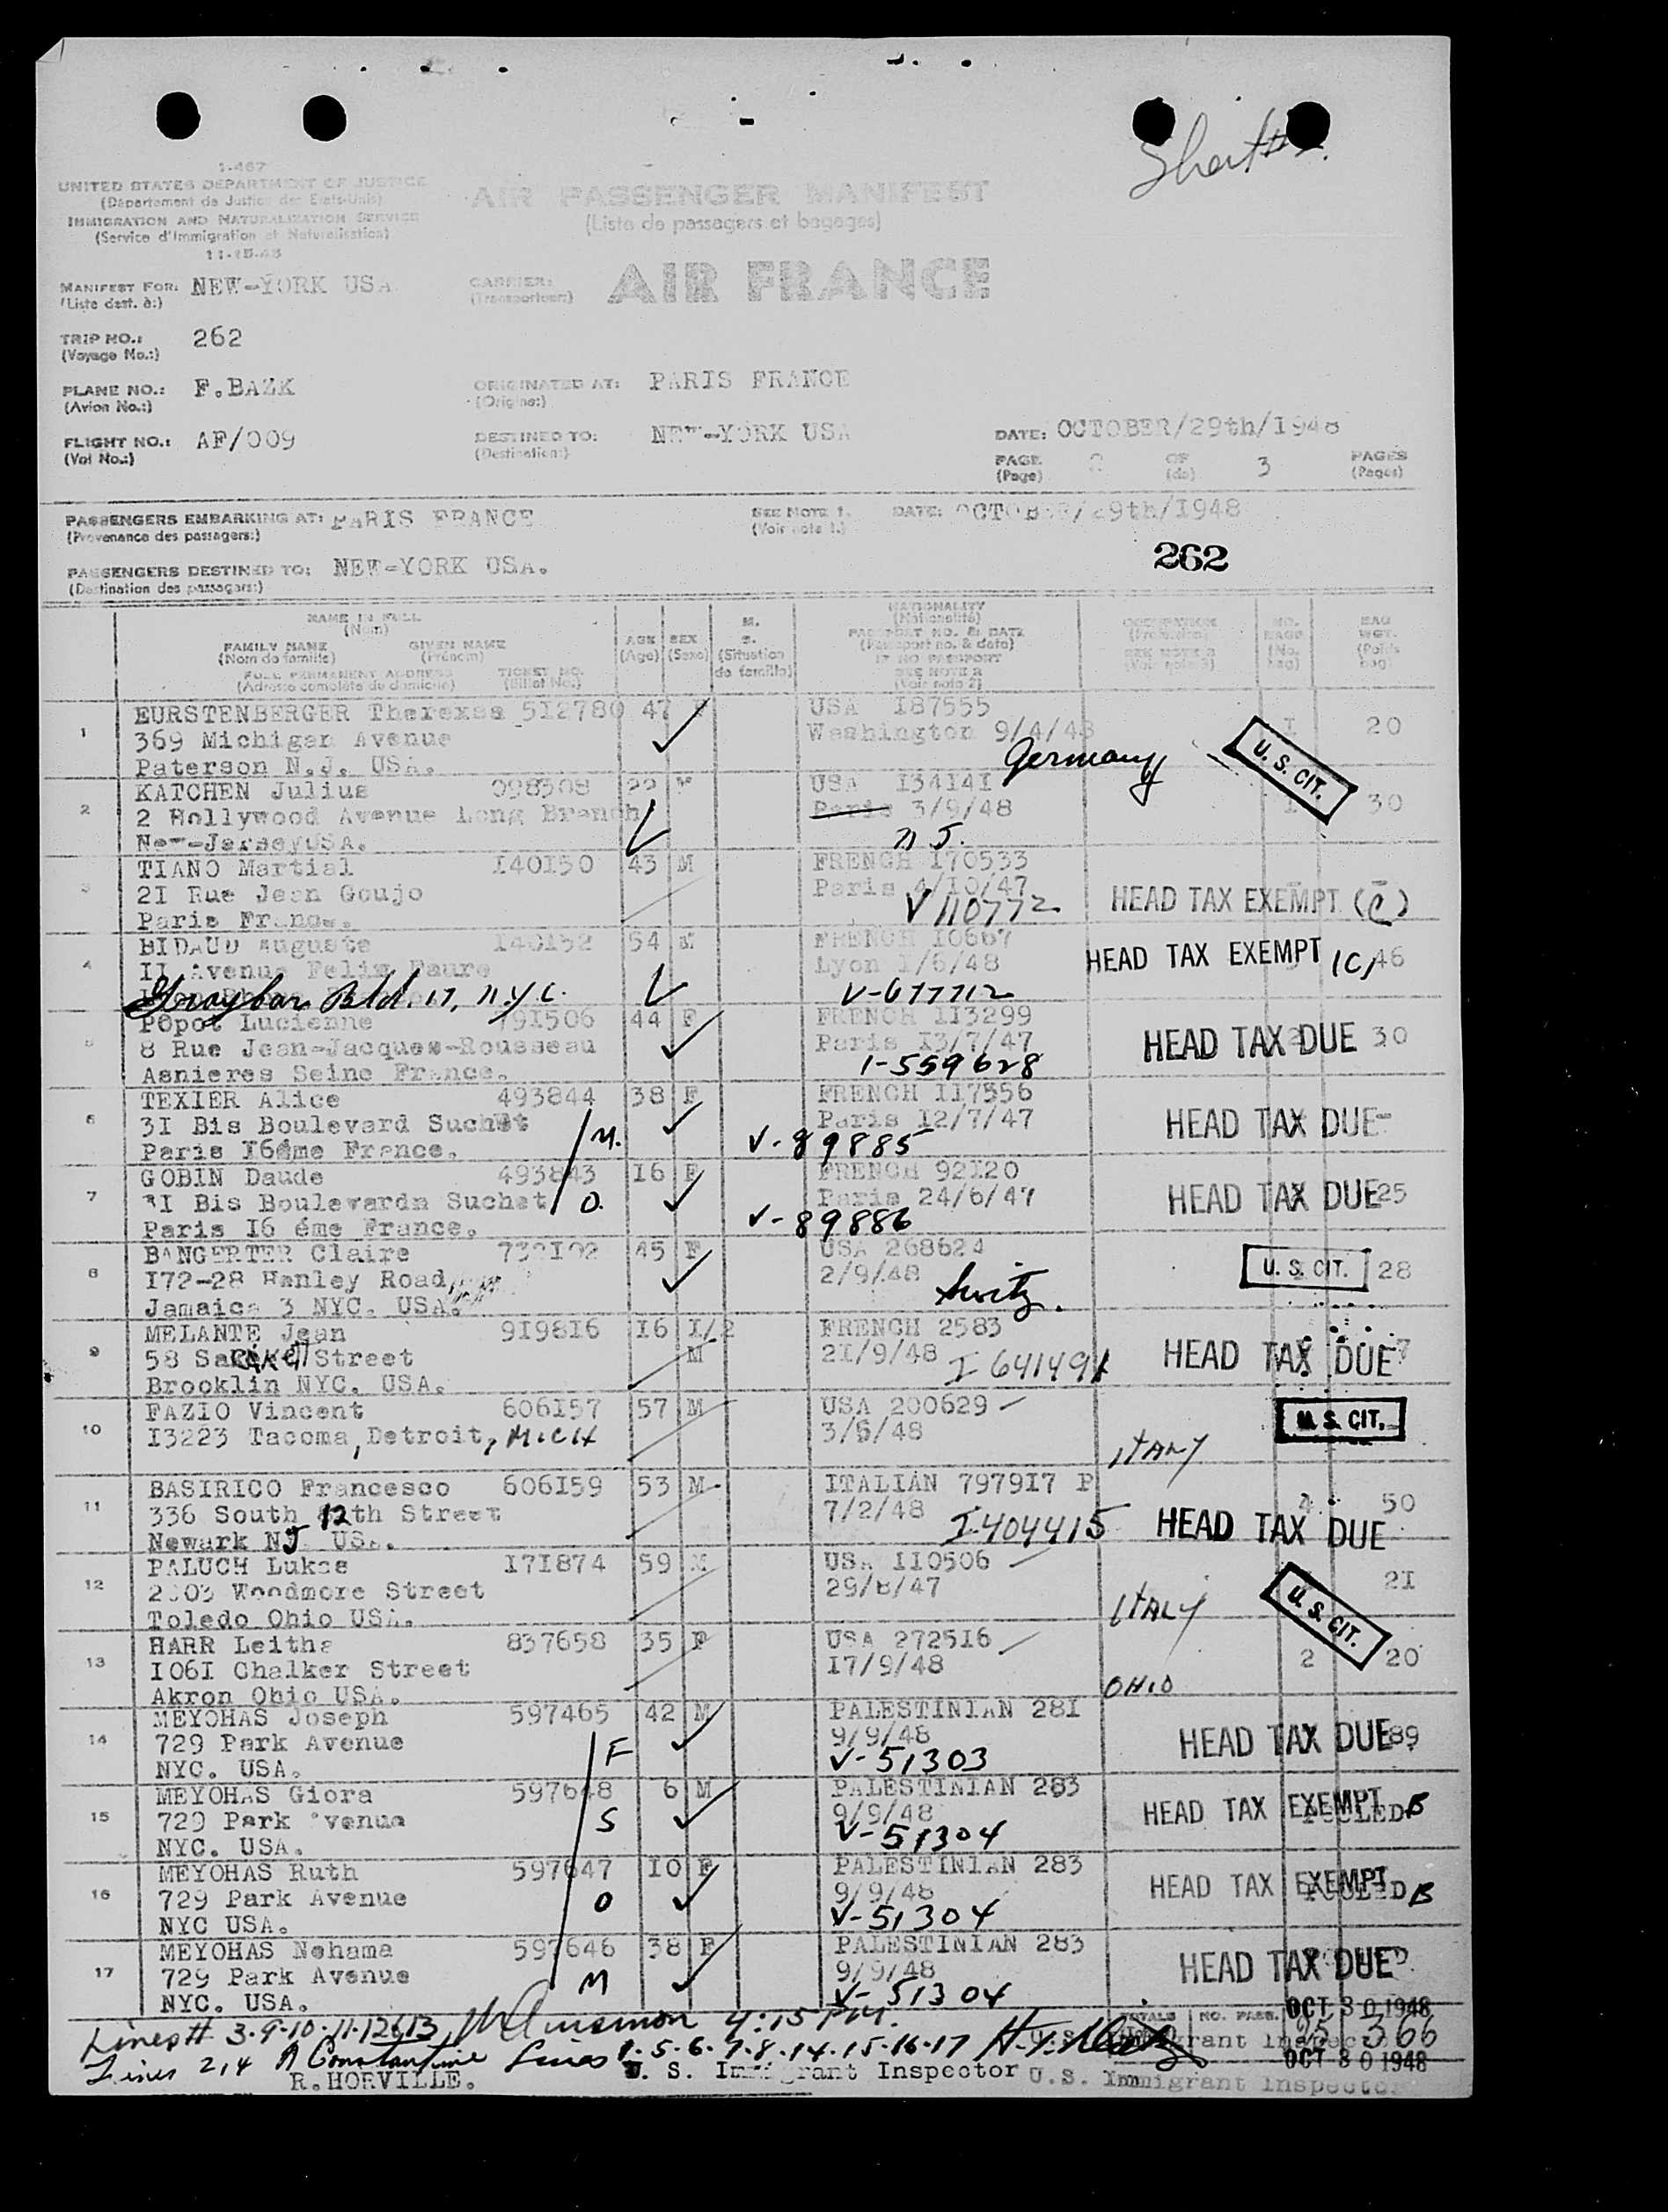 Sheet
1-467
UNITED STATES DEPARTMENT OF JUSTICE
(Département de Justice des Etats-Unis)
IMMIGRATION AND NATURALIZATION SERVICE
(Service d'Immigration et Naturalisation)
11-15-45
AIR PASSENGER MANIFEST
(Liste de passagers et bagages)
MANIFEST FOR: NEW-YORK USA
(Liste dest. à:)
CARRIER: AIR FRANCE
(Transporteur:)
TRIP NO.: 262
(Voyage No.:)
PLANE NO.: F.BAZK
(Avion No.:)
ORIGINATED AT: PARIS FRANCE
(Origine:)
FLIGHT NO.: AF/009
(Vol No.:)
DESTINED TO: NEW-YORK USA
(Destination:)
DATE: OCTOBER/29th/I948
PAGE 2 OF 3 PAGES
(Page) (de) (Pages)
PASSENGERS EMBARKING AT: PARIS FRANCE
(Provenance des passagers:)
SEE NOTE 1.
(Voir note 1.)
DATE: OCTOBER/29th/I948
262
PASSENGERS DESTINED TO: NEW-YORK USA.
(Destination des passagers:)
NAME IN FULL
(Nom)
FAMILY NAME GIVEN NAME
(Nom de famille) (Prénom)
FULL PERMANENT ADDRESS TICKET NO.
(Adresse complète du domicile) (Billet No.)
AGE SEX
(Age) (Sexe)
M.
S.
(Situation
de famille)
NATIONALITY
(Nationalité)
PASSPORT NO. & DATE
(Passeport no. & date)
IF NO PASSPORT
SEE NOTE 2
(Voir note 2)
OCCUPATION
(Profession)
SEE NOTE 2
(Voir note 2)
NO.
BAGS
(No.
bag)
BAG
WGT.
(Poids
bag)
1 EURSTENBERGER Therexsa 5I2780 47 F USA I87555 I 20
369 Michigan Avenue Washington 9/4/48 U. S. CIT.
Paterson N.J. USA. Germany
2 KATCHEN Julius 098508 22 M USA I34I4I 30
2 Hollywood Avenue Long Branch Paris 3/9/48
New-JerseyUSA. N J.
3 TIANO Martial I40I50 43 M FRENCH I70533
2I Rue Jean Goujo Paris 4/I0/47 HEAD TAX EXEMPT (C)
Paris France. V 110772
4 BIDAUD Auguste I40I52 54 M FRENCH I0667 HEAD TAX EXEMPT (C) 46
II Avenue Felix Faure Lyon I/6/48
Graybar Bld. 17, N.Y.C. V-677712
5 Popot Lucienne 79I506 44 F FRENCH II3299
8 Rue Jean-Jacques-Rousseau Paris I3/7/47 HEAD TAX DUE 30
Asnieres Seine France. I-559628
6 TEXIER Alice 493844 38 F FRENCH II7556
3I Bis Boulevard Suchet Paris I2/7/47 HEAD TAX DUE
Paris I6éme France. M. V-89885
7 GOBIN Daude 493843 I6 F FRENCH 92I20
3I Bis Boulevardn Suchet D. Paris 24/6/47 HEAD TAX DUE 25
Paris I6 éme France. V-89886
8 BANGERTER Claire 732I02 45 F USA 268624
I72-28 Henley Road, 2/9/48 U. S. CIT. 28
Jamaica 3 NYC. USA. Switz.
9 MELANTE Jean 9I98I6 I6 I/2 FRENCH 2583
58 Street M 2I/9/48 I 641491 HEAD TAX DUE 7
Brooklin NYC. USA.
10 FAZIO Vincent 606I57 57 M USA 200629 U. S. CIT.
I3223 Tacoma, Detroit, MICH 3/6/48
ITALY
11 BASIRICO Francesco 606I59 53 M ITALIAN 7979I7 P 4 50
336 South 12th Street 7/2/48 I-404415 HEAD TAX DUE
Newark NJ USA.
12 PALUCH Lukas I7I874 59 M USA II0506 2I
2303 Woodmore Street 29/8/47 U. S. CIT.
Toledo Ohio USA. ITALY
13 HARR Leitha 837658 35 F USA 2725I6
I06I Chalker Street I7/9/48 2 20
Akron Ohio USA. OHIO
14 MEYOHAS Joseph 597465 42 M PALESTINIAN 28I
729 Park Avenue 9/9/48 HEAD TAX DUE 89
NYC. USA. F V-51303
15 MEYOHAS Giora 597648 6 M PALESTINIAN 283
729 Park Avenue S 9/9/48 HEAD TAX EXEMPT POOLED B
NYC. USA. V-51304
16 MEYOHAS Ruth 597647 I0 F PALESTINIAN 283
729 Park Avenue D 9/9/48 HEAD TAX EXEMPT POOLED B
NYC USA. V-51304
17 MEYOHAS Nehama 597646 38 F PALESTINIAN 283
729 Park Avenue M 9/9/48 HEAD TAX DUE
NYC. USA. V-51304
TOTALS NO. PASS. OCT 30 1948
Lines # 3-9-10-11-12&13 4:15 PM. 25 366
Lines 2,4 A Constantine Lines 1-5-6-7-8-14-15-16-17 OCT 30 1948
R.HORVILLE. U. S. Immigrant Inspector U.S. Immigrant Inspector